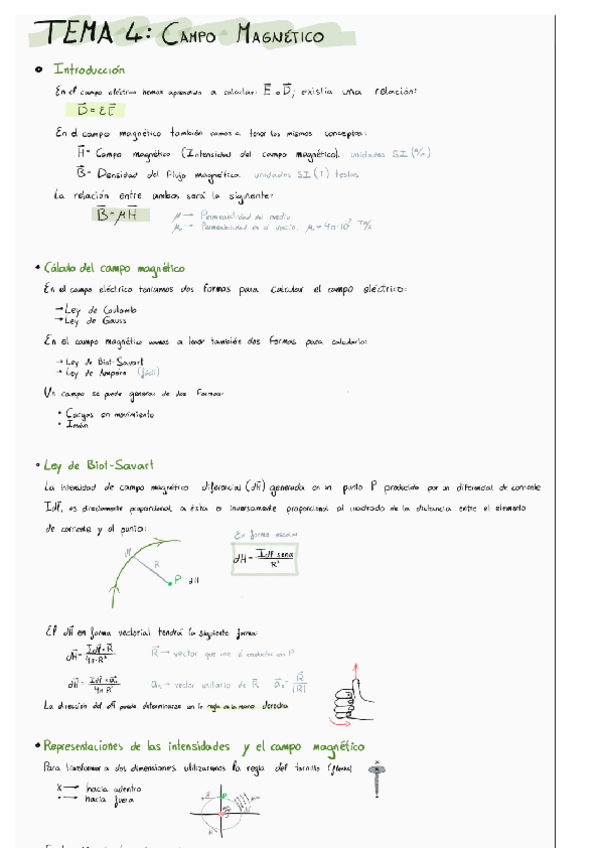 TEMA 4: CAMPO MAGNÉTICO
Introducción
En el campo eléctrico hemos aprendido a calcular: E o D; existía una relación:
D = εE
En el campo magnético también vamos a tener los mismos conceptos:
H = Campo magnético (Intensidad del campo magnético). unidades S.I (A/m)
B = Densidad del flujo magnético. unidades S.I (T) teslas
La relación entre ambos será la siguiente:
B = μH
μ → Permeabilidad del medio
μ₀ → Permeabilidad en el vacío. μ₀ = 4π·10⁻⁷ Tm/A
Cálculo del campo magnético
En el campo eléctrico teníamos dos formas para calcular el campo eléctrico:
→ Ley de Coulomb
→ Ley de Gauss
En el campo magnético vamos a tener también dos formas para calcularlo:
→ Ley de Biot-Savart
→ Ley de Ampere (fácil)
Un campo se puede generar de dos formas:
• Cargas en movimiento
• Imán
Ley de Biot-Savart
La intensidad de campo magnético diferencial (dH) generada en un punto P producido por un diferencial de corriente
Idl, es directamente proporcional a ésta e inversamente proporcional al cuadrado de la distancia entre el elemento
de corriente y el punto:
En forma escalar
dH = Idl senα / R²
dl
R
P dH
El dH en forma vectorial tendrá la siguiente forma:
R → vector que une el conductor con P
aᵣ → vector unitario de R aᵣ = R / |R|
La dirección del dH puede determinarse con la regla de la mano derecha
Representaciones de las intensidades y el campo magnético
Para transformar a dos dimensiones utilizaremos la regla del tornillo
x → hacia adentro
• → hacia fuera